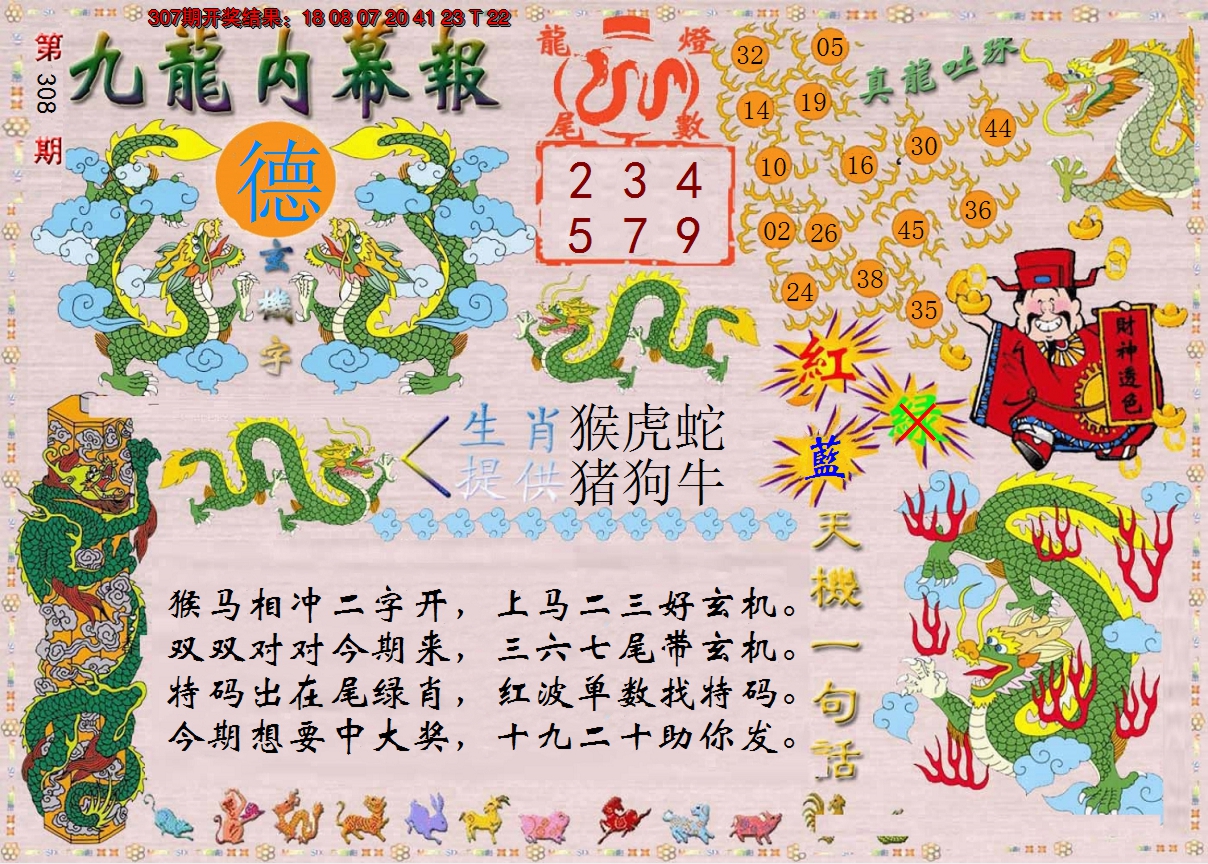 307期开奖结果：18 08 07 20 41 23 T 22
第308期
九龍内幕報
德
玄機字
龍燈尾數
2 3 4
5 7 9
真龍吐珠
32 05
14 19
30 44
10 16
36
02 26 45
38
24
35
財神透色
紅
绿
藍
生肖提供
猴虎蛇
猪狗牛
猴马相冲二字开，上马二三好玄机。
双双对对今期来，三六七尾带玄机。
特码出在尾绿肖，红波单数找特码。
今期想要中大奖，十九二十助你发。
天機一句話